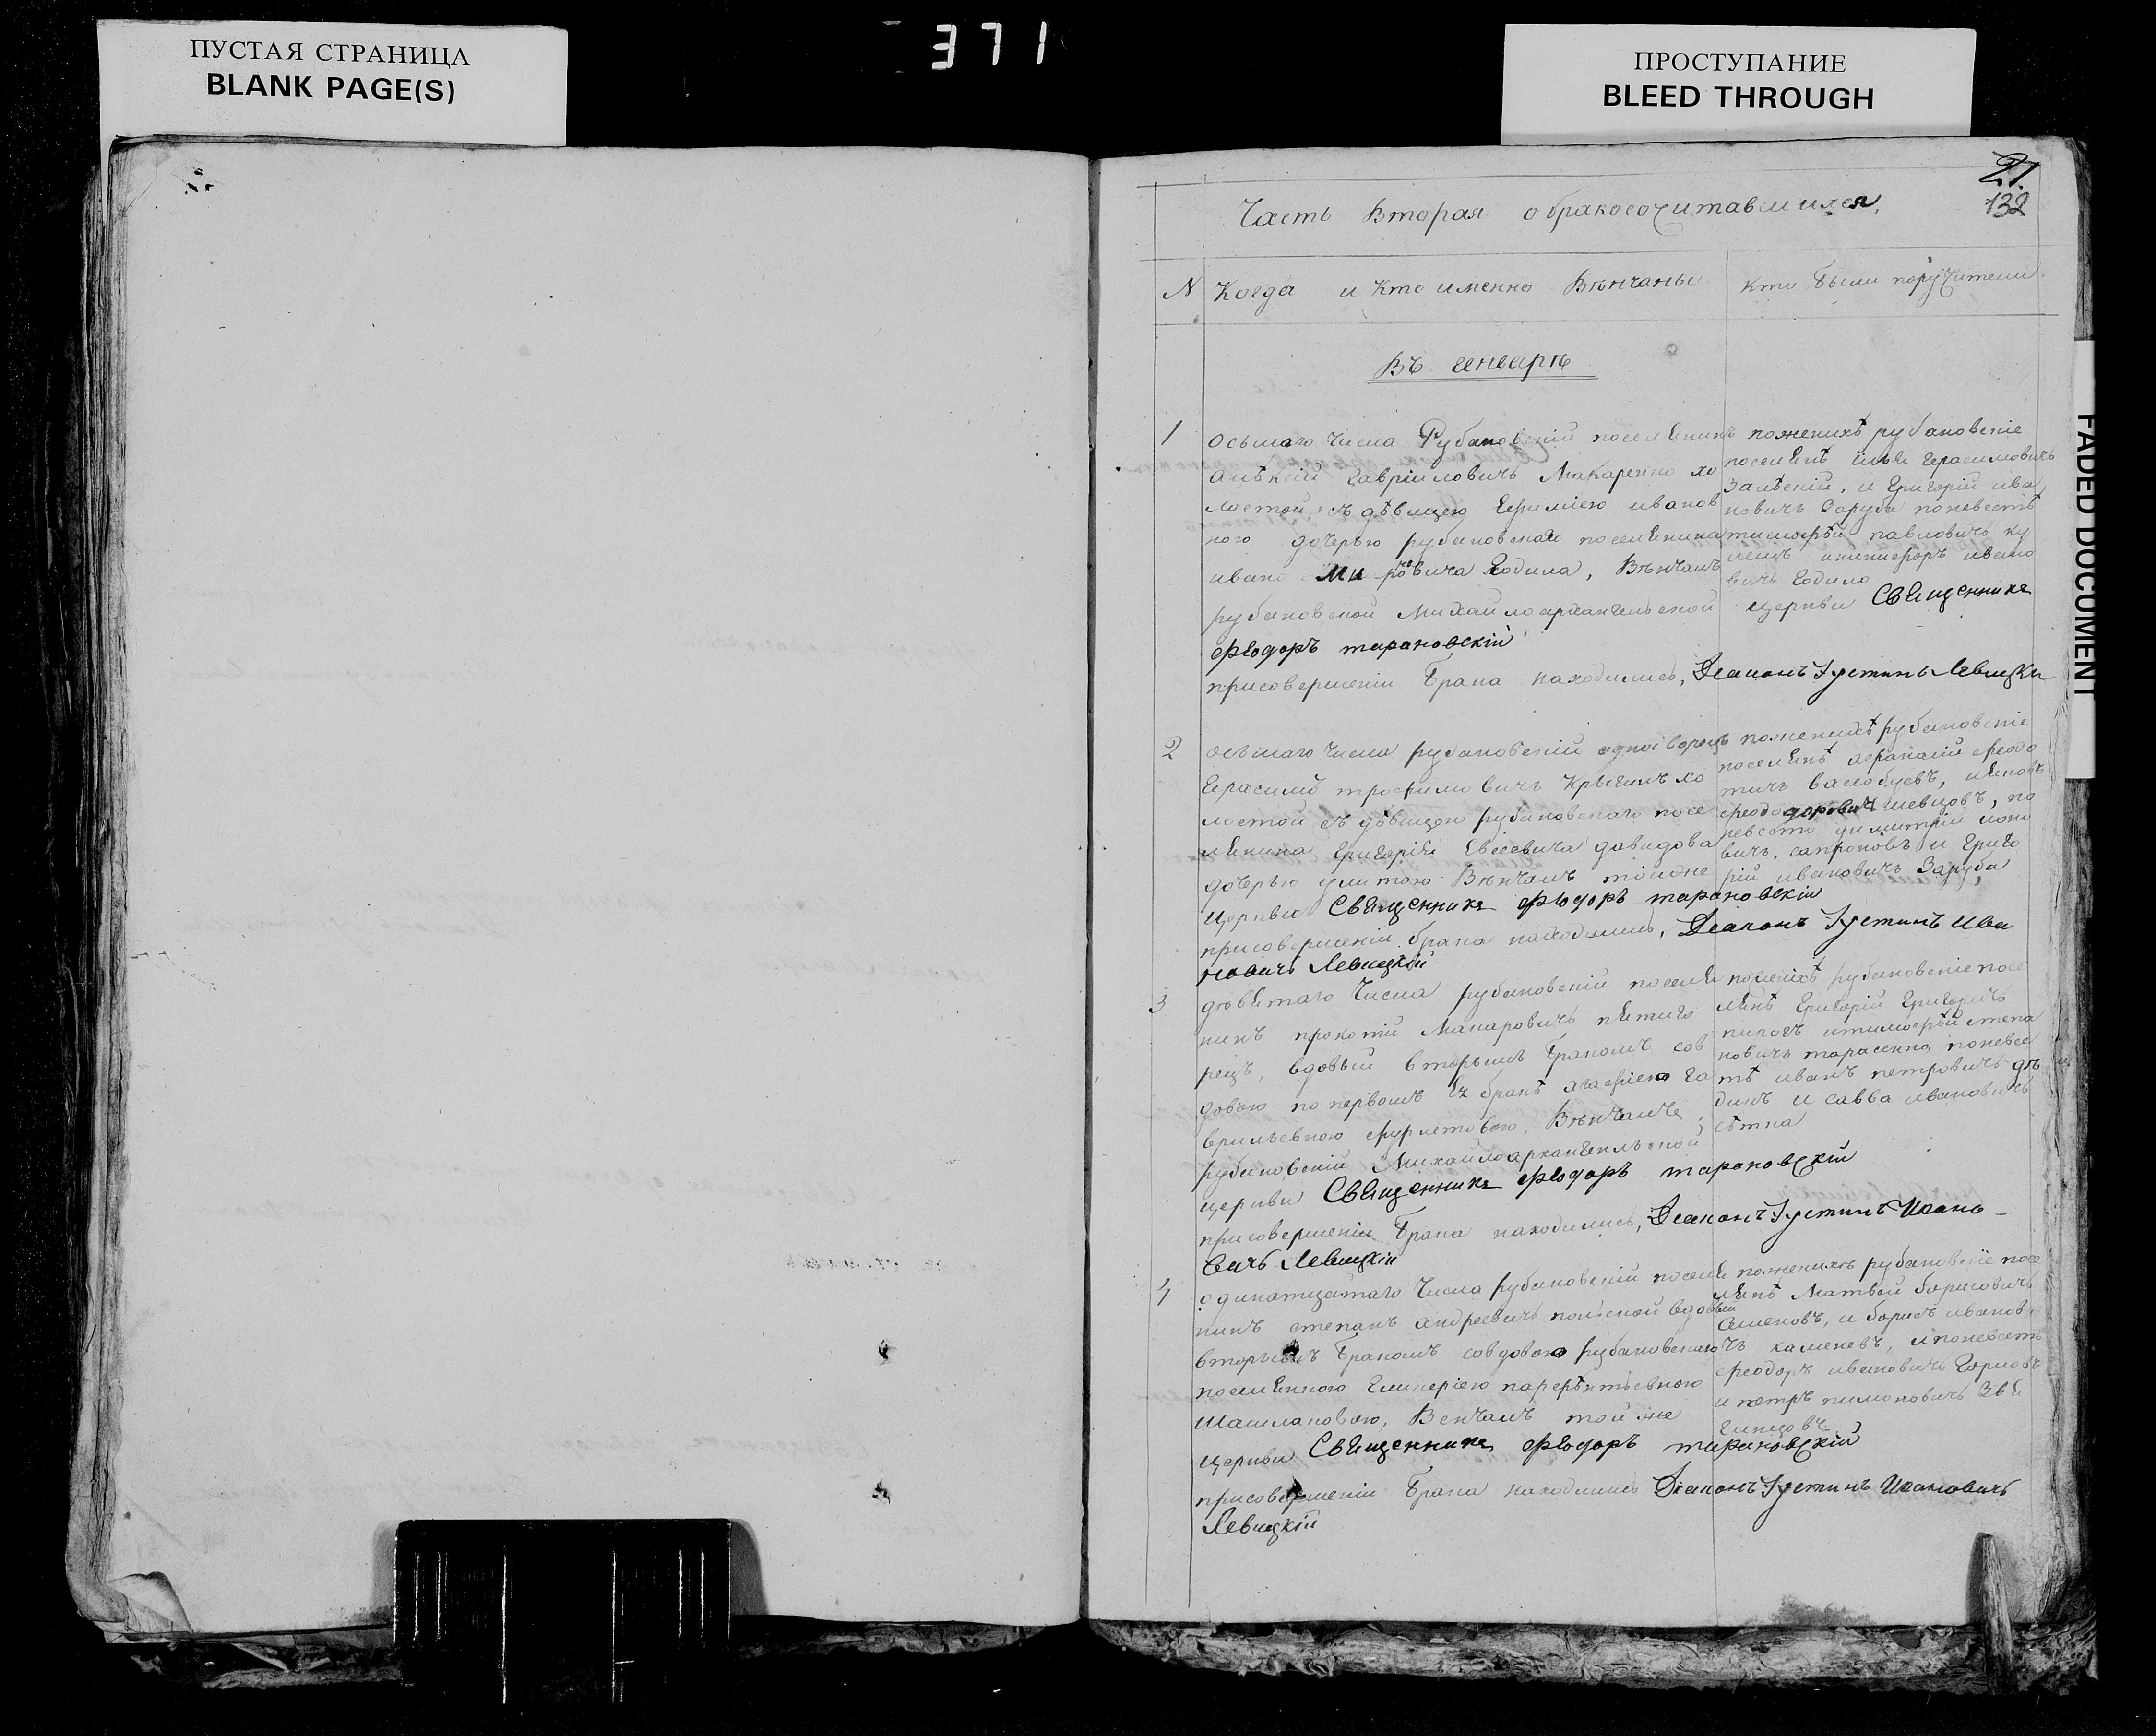 ПУСТАЯ СТРАНИЦА
BLANK PAGE(S)
371
ПРОСТУПАНИЕ
BLEED THROUGH
FADED DOCUMENT
21.
132
Часть Вторая обракосочитавшихся.
N Когда и кто именно Вѣнчаны
кто были поручители
Въ генварѣ
1
осьмаго числа Рубановскій поселянинъ
Алѣксій гавріиловичъ Макаренко хо
лостой, съ дѣвицею Ефиміею иванов
ною дочерью рубановскаго поселянина
ивана вича Година, Вѣнчалъ
рубановской Михайлоархангельской церкви Священникъ
Ѳеодоръ тарановскій
присовершеніи Брака находились, Діаконъ Іустинъ Левицкій
поженихѣ рубановскіе
поселянѣ илья герасимовичъ
Залѣскій, и григорій ива
новичъ Заруба поневѣстѣ
тимоѳѣй павловичъ ку
иникифоръ ивано
вичъ Година
2
осьмаго числа рубановскій однодворецъ
Герасимъ трофимовичъ Крыгинъ хо
лостой съ дѣвицею рубановскаго посе
лянина григорія Евсеевича давидова
дочерью улитою Вѣнчалъ тойже
церкви Священникъ Ѳеодоръ тарановскій
присовершеніи брака находились, Діаконъ Іустинъ Ива
новичъ Левицкій
поженихѣ рубановскіе
поселянѣ аѳанасій
ияковъ
ѳеодоровичъ шевцовъ, по
невѣстѣ димитрій
вичъ, сапроновъ и григо
рій ивановичъ Заруба
3
дѣвятаго Числа рубановскій поселя
нинъ прокопій Макаровичъ пятиго
рецъ, вдовый вторымъ Бракомъ сов
довою попервомъ бракѣ агафіею га
вриловною Вѣнчалъ
рубановскій Михайлоархангельской
церкви Священникъ Ѳеодоръ тарановскій
присовершеніи Брака находились, Діаконъ Іустинъ Ивано-
вичъ Левицкій
поженихѣ рубановскіе посе
лянѣ григорій григоричъ
итимоѳѣй степа
новичъ тарасенко, поневес
тѣ иванъ петровичъ
и савва ивановичъ
4
одинатцатаго Числа рубановскій поселя
нинъ степанъ андреевичъ вдовый
вторымъ Бракомъ совдовою рубановскаго
поселянкою гликеріею
Шашлаковою, Венчалъ тойже
церкви Священникъ Ѳеодоръ тарановскій
присовершеніи Брака находились Діаконъ Іустинъ Ивановичъ
Левицкій
поженихѣ рубановскіе посе
лянѣ Матвей борисовичъ
Семеновъ, и борисъ иванови
чъ каменевъ, ипоневѣстѣ
ѳеодоръ ивановичъ Горловъ
и петръ пимоновичъ Звя
гинцовъ